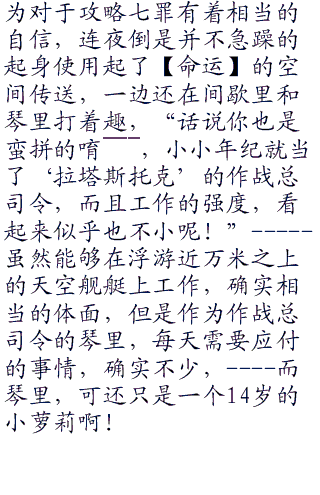 为对于攻略七罪有着相当的
自信，连夜倒是并不急躁的
起身使用起了【命运】的空
间传送，一边还在间歇里和
琴里打着趣，“话说你也是
蛮拼的唷——，小小年纪就当
了‘拉塔斯托克’的作战总
司令，而且工作的强度，看
起来似乎也不小呢！”-----
虽然能够在浮游近万米之上
的天空舰艇上工作，确实相
当的体面，但是作为作战总
司令的琴里，每天需要应付
的事情，确实不少，----而
琴里，可还只是一个14岁的
小萝莉啊！